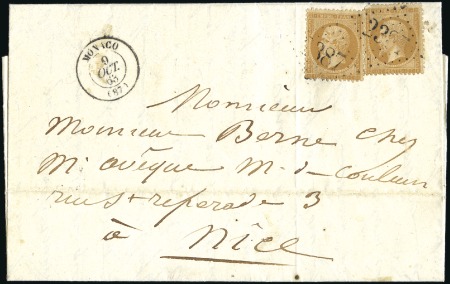 MONACO
9
OCT.
63
(87)
2387
Monsieur
Monsieur Berne Chez
Mr. avêque M-d-Couleur
rue St reparade 3
à Nice